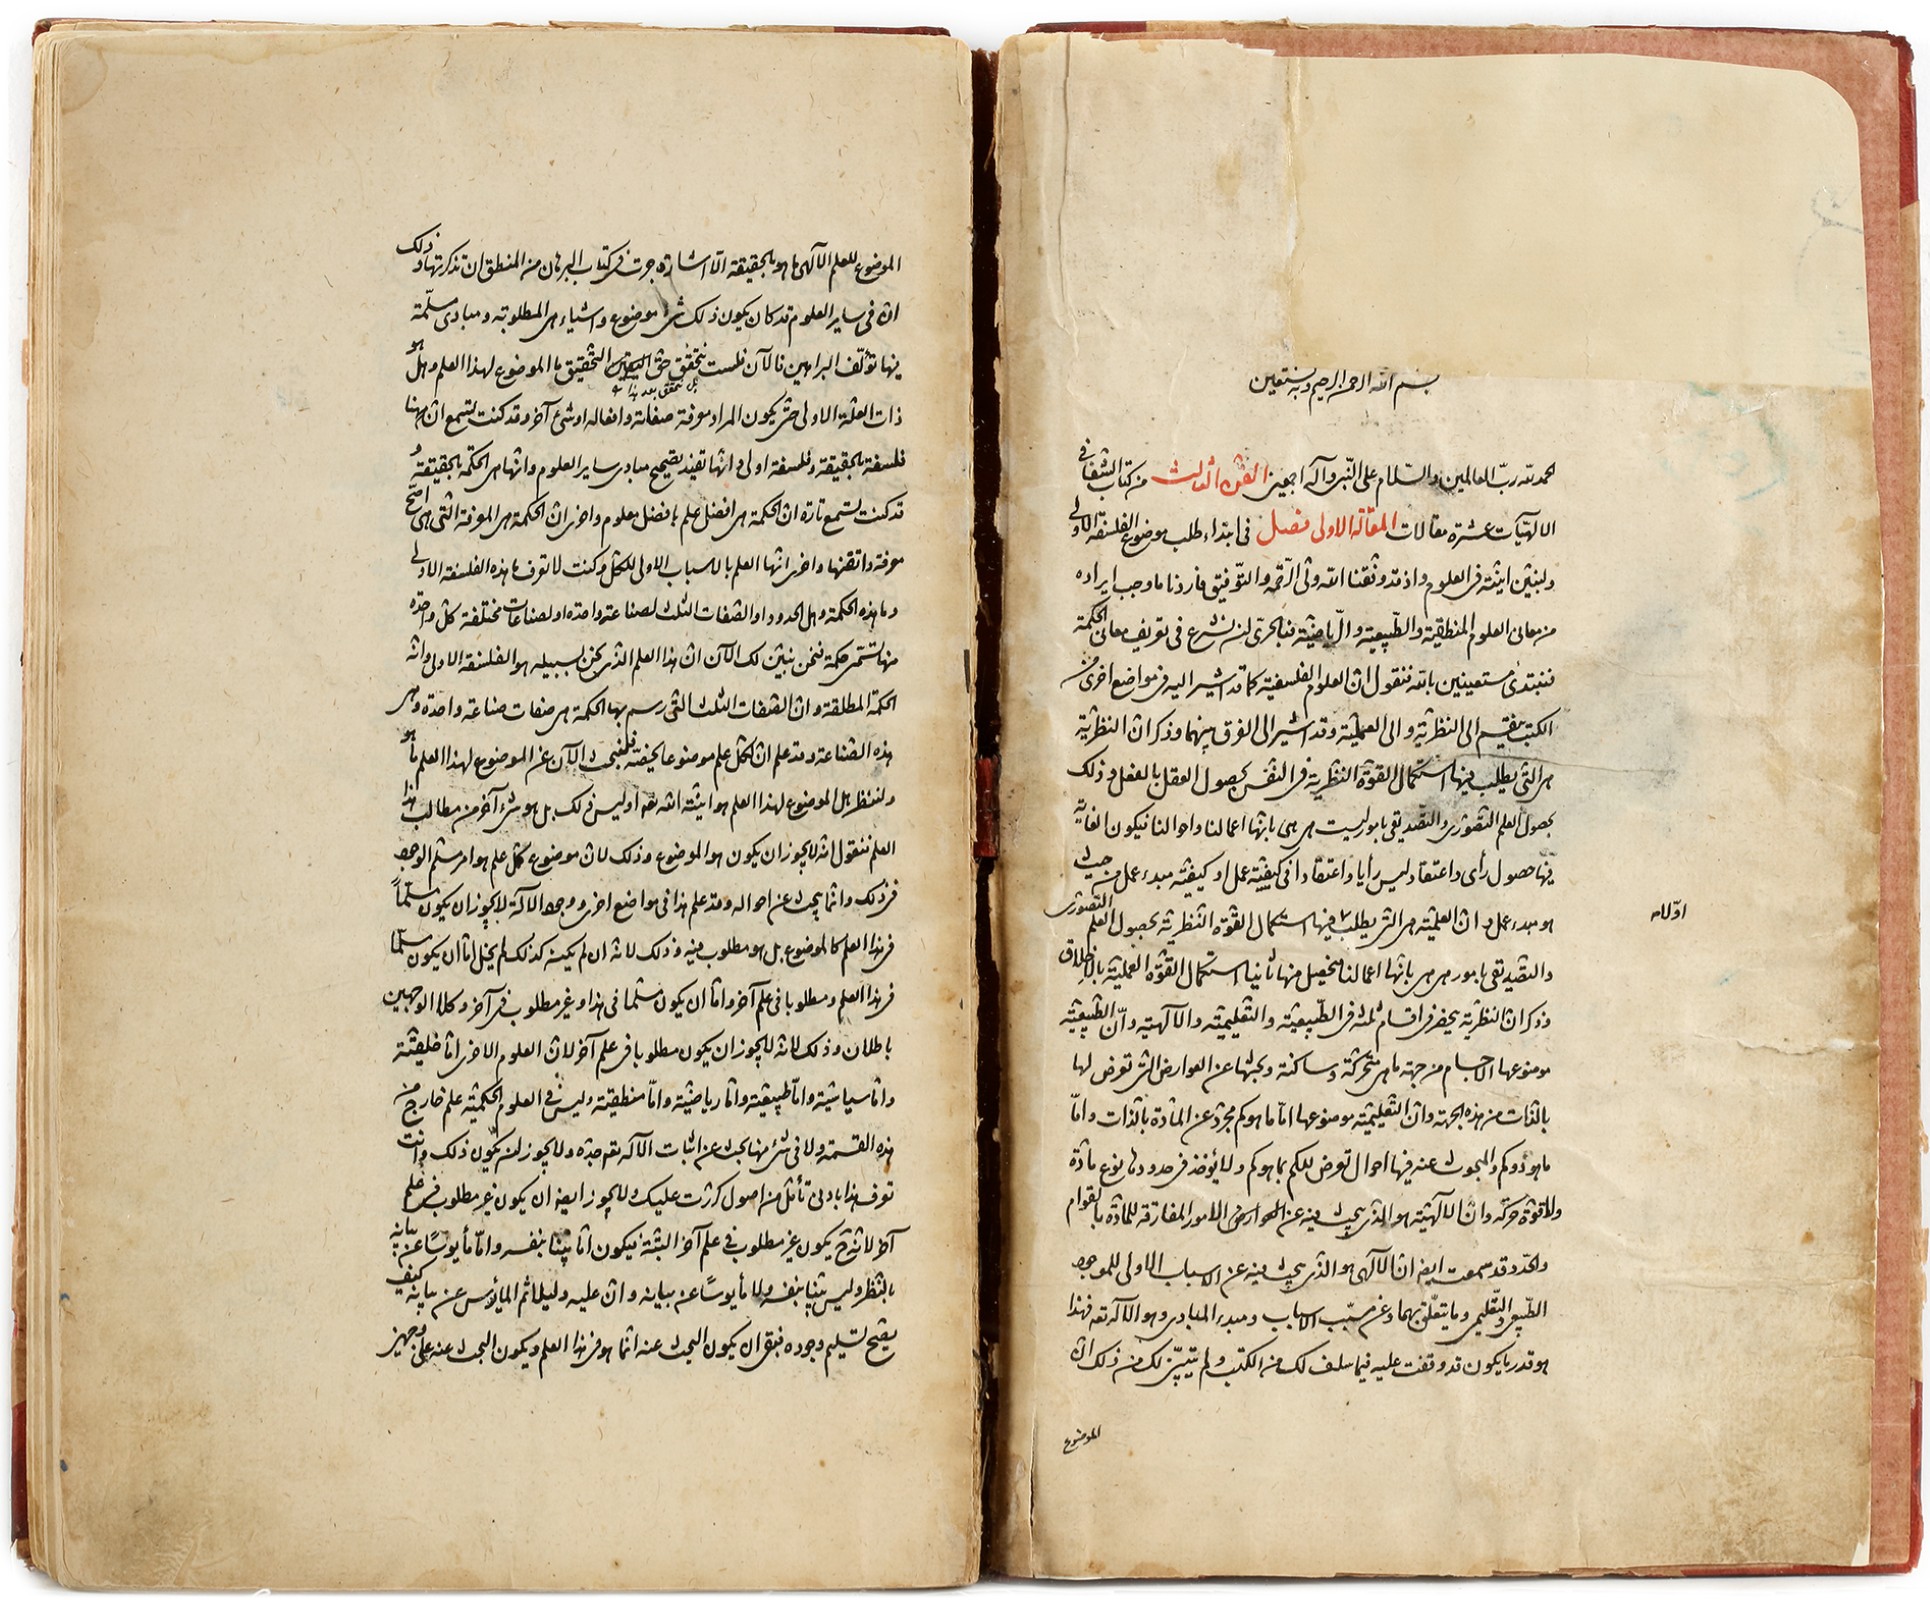 بسم الله الرحمن الرحيم وبه نستعين
الحمد لله رب العالمين والسلام على النبي وآله اجمعين الفن الثالث من كتاب الشفا في
الالهيات عشرة مقالات المقالة الاولى فصل في ابتداء طلب موضوع الفلسفة الاولى
وليتبين انيته في العلوم واذ قد وفقنا الله ولى الرحمة والتوفيق فاردنا ما وجب ايراده
من معانى العلوم المنطقية والطبيعية والرياضية فبالحرى لن نشرع في تعريف معانى الحكمة
فنبتدى مستعينين بالله فنقول ان العلوم الفلسفية كما قد اشير اليه في مواضع اخرى من
الكتب ينقسم الى النظرية والى العملية وقد اشير الى الفرق بينهما وذكر ان النظرية
هى التى يطلب فيها استكمال القوة النظرية في النفس بحصول العقل بالفعل وذلك
بحصول العلم التصورى والتصديقى بامور ليست هى هى بانها اعمالنا واحوالنا فيكون الغاية
فيها حصول رأى واعتقاد ليس رأيا واعتقادا في كيفية عمل او كيفية مبدء عمل من حيث
هو مبدء عمل وان العملية هى التى يطلب فيها استكمال القوة النظرية بحصول العلم التصورى
اولا
والتصديقى بامور هى هى بانها اعمالنا فيحصل منها ثانيا استكمال القوة العملية بالاخلاق
وذكر ان النظرية ينحصر في اقسام ثلثة في الطبيعية والتعليمية والالهية وان الطبيعية
موضوعها الاجسام من جهة ما هى متحركة وساكنة وبحثها عن العوارض التى تعرض لها
بالذات من هذه الجهة وان التعليمية موضوعها اما ما هو كم مجرد عن المادة بالذات واما
ما هو ذو كم والمبحوث عنه فيها احوال تعرض للكم بما هو كم ولا يؤخذ في حدودها نوع مادة
ولا قوة حركة وان الالهية هو الذى يبحث فيه عن الامور المفارقة للمادة بالقوام
والحد وقد سمعت ايضا ان الالهى هو الذى يبحث فيه عن الاسباب الاولى للموجود
الطبيعى والتعليمى وما يتعلق بهما وعن مسبب الاسباب ومبدء المبادى وهو الاله تعه فهذا
هو قدر ما يكون قد وقفت عليه فيما سلف لك من الكتب ولم يتبين لك من ذلك ان
الموضوع
الموضوع للعلم الالهى ما هو بالحقيقة الا اشارة جرت في كتاب البرهان من المنطق ان تذكرتها وذلك
ان في ساير العلوم قد كان يكون ذلك شئ موضوع واشياء هى المطلوبة ومبادى مسلمة
منها تؤلف البراهين فالآن فلست تحقق حق التحقيق ما الموضوع لهذا العلم وهل هو
ذات العلة الاولى حتى يكون المراد معرفة صفاته وافعاله او شئ آخر وقد كنت تسمع ان ههنا
فلسفة بالحقيقة وفلسفة اولى وانها تفيد تصحيح مبادى ساير العلوم وانها هى الحكمة بالحقيقة و
قد كنت تسمع تارة ان الحكمة هى افضل علم بافضل معلوم واخرى ان الحكمة هى المعرفة التى هى اصح
معرفة واتقنها واخرى انها العلم بالاسباب الاولى للكل وكنت لا تعرف ما هذه الفلسفة الاولى
وما هذه الحكمة وهل الحدود او الصفات الثلث لصناعة واحدة او لصناعات مختلفة كل واحدة
منها تسمى حكمة فنحن نبين لك الآن ان هذا العلم الذى نحن بسبيله هو الفلسفة الاولى وانه
الحكمة المطلقة وان الصفات الثلث التى رسم بها الحكمة هى صفات صناعة واحدة وهى
هذه الصناعة وقد علم ان لكل علم موضوعا يخصه فلنبحث الآن عن الموضوع لهذا العلم ما هو
ولننظر هل الموضوع لهذا العلم هو انية الله تعه او ليس ذلك بل هو شئ آخر من مطالب هذا
العلم فنقول انه لا يجوز ان يكون هو الموضوع وذلك لان موضوع كل علم هو امر مسلم الوجود
في ذلك وانما يبحث عن احواله وقد علم هذا في مواضع اخرى ووجود الاله لا يجوز ان يكون مسلماً
في هذا العلم كالموضوع بل هو مطلوب فيه وذلك لانه ان لم يكن كذلك لم يخل اما ان يكون مسلما
في هذا العلم ومطلوبا في علم آخر واما ان يكون مسلما في هذا وغير مطلوب في آخر وكلا الوجهين
باطلان وذلك لانه لا يجوز ان يكون مطلوبا في علم آخر لان العلوم الاخرى اما خلقية
واما سياسية واما طبيعية واما رياضية واما منطقية وليس في العلوم الحكمية علم خارج من
هذه القسمة ولا في شئ منها يبحث عن اثبات الاله تعه جده ولا يجوز لن يكون ذلك وانت
تعرف هذا بادنى تأمل من اصول كررت عليك ولا يجوز ايضا ان يكون غير مطلوب في علم
آخر لانه ح يكون غير مطلوب في علم آخر البتة فيكون اما بينا بنفسه واما مأيوسا عن بيانه
بالنظر وليس بينا بنفسه ولا مأيوسا عن بيانه وان عليه دليلا ثم المأيوس عن بيانه كيف
يصح تسليم وجوده فبقى ان يكون البحث عنه انما هو في هذا العلم ويكون البحث عنه على وجهين